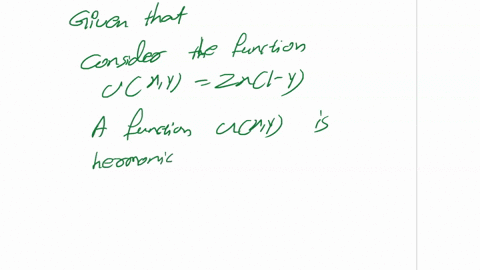 Given that
Consider the function
U(x,y) = 2x(1-y)
A function u(x,y) is
hermonic